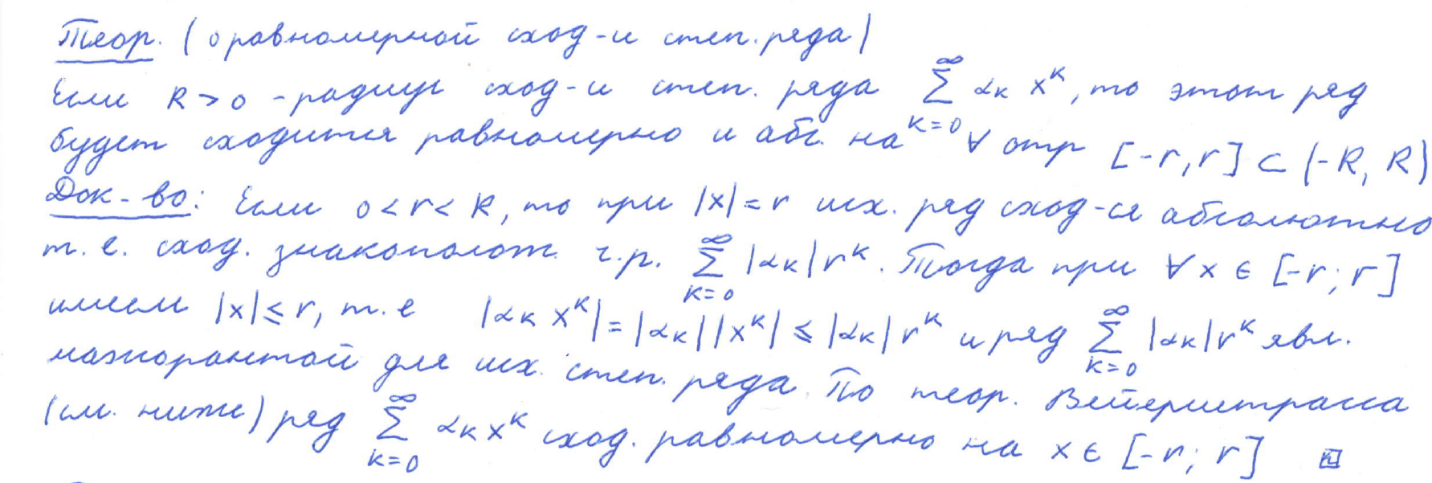 Теор. (о равномерной сход-и степ. ряда)
Если R > 0 - радиус сход-и степ. ряда ∑_{k=0}^{∞} α_k x^k, то этот ряд
будет сходится равномерно и абс. на ∀ отр [-r, r] ⊂ (-R, R)
Док-во: Если 0 < r < R, то при |x| = r исх. ряд сход-ся абсолютно
т.е. сход. знакополож. ч.р. ∑_{k=0}^{∞} |α_k| r^k. Тогда при ∀ x ∈ [-r; r]
имеем |x| ≤ r, т.е |α_k x^k| = |α_k| |x^k| ≤ |α_k| r^k и ряд ∑_{k=0}^{∞} |α_k| r^k явл.
мажорантой для исх. степ. ряда. По теор. Вейерштрасса
(см. ниже) ряд ∑_{k=0}^{∞} α_k x^k сход. равномерно на x ∈ [-r; r]